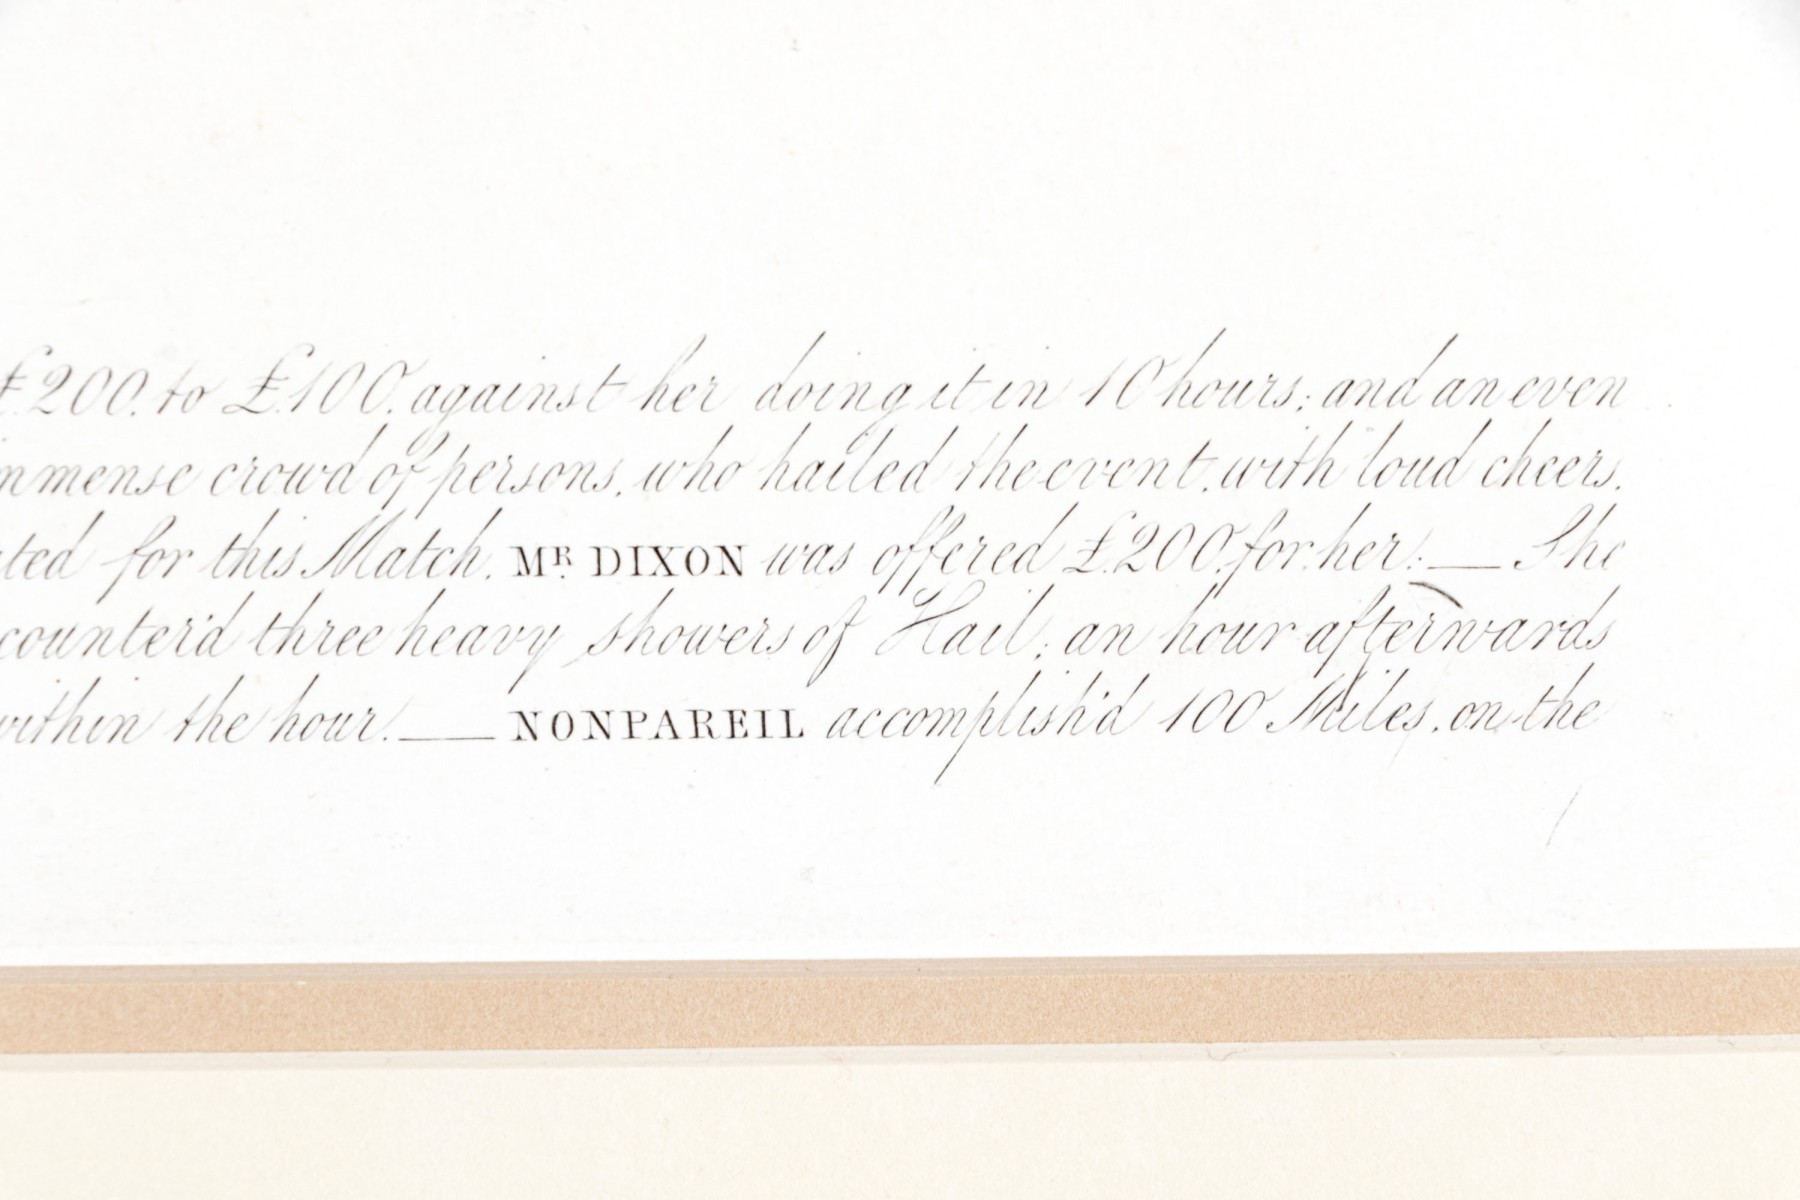 £200. to £100. against her doing it in 10 hours; and an even
mmense crowd of persons, who hailed the event, with loud cheers.
ted for this Match. MR. DIXON was offered £200. for her. — She
counter'd three heavy showers of Hail; an hour afterwards
within the hour. — NONPAREIL accomplish'd 100 Miles, on the